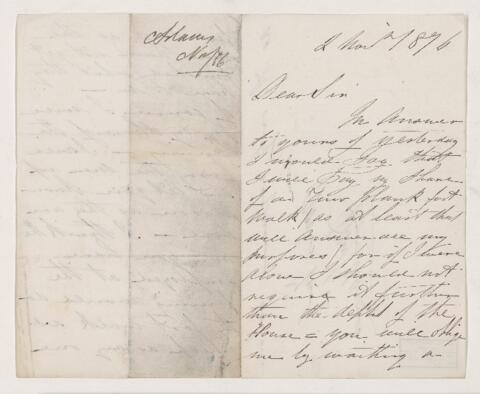 Adams
Nov/76
2 Nov 1876
Dear Sir
In Answer
to yours of yesterday
I would say that
I will Pay my share
of a Two plank foot
walk (as at least that
will answer all my
purposes) for if I were
alone I should not
require it further
than the depth of the
House = you will oblige
me by waiting a